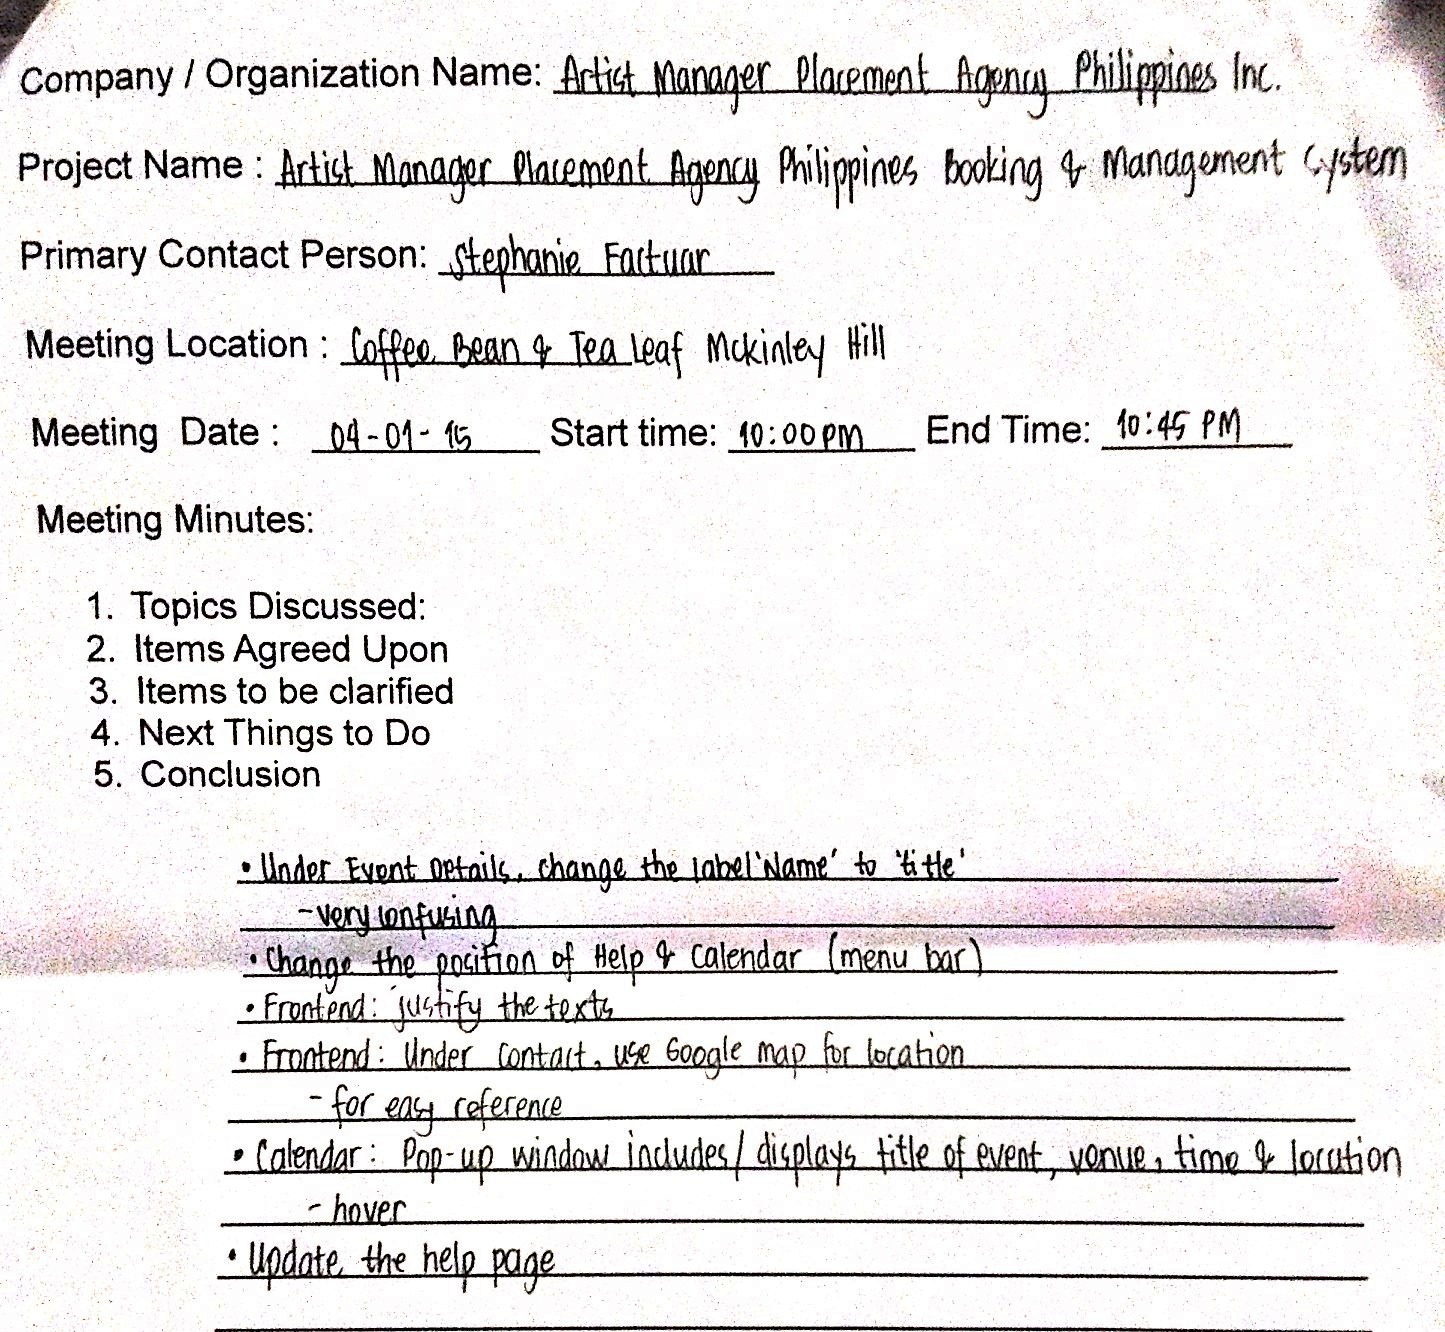 Company / Organization Name: Artist Manager Placement Agency Philippines Inc.
Project Name : Artist Manager Placement Agency Philippines Booking & Management System
Primary Contact Person: Stephanie Factuar
Meeting Location : Coffee Bean & Tea Leaf Mckinley Hill
Meeting Date : 04-01-15 Start time: 10:00 PM End Time: 10:45 PM
Meeting Minutes:
1. Topics Discussed:
2. Items Agreed Upon
3. Items to be clarified
4. Next Things to Do
5. Conclusion
• Under Event Details, change the label 'Name' to 'title'
- very confusing
• Change the position of Help & Calendar (menu bar)
• Frontend: justify the texts
• Frontend: Under Contact, use Google map for location
- for easy reference
• Calendar: Pop-up window includes/displays title of event, venue, time & location
- hover
• Update the help page